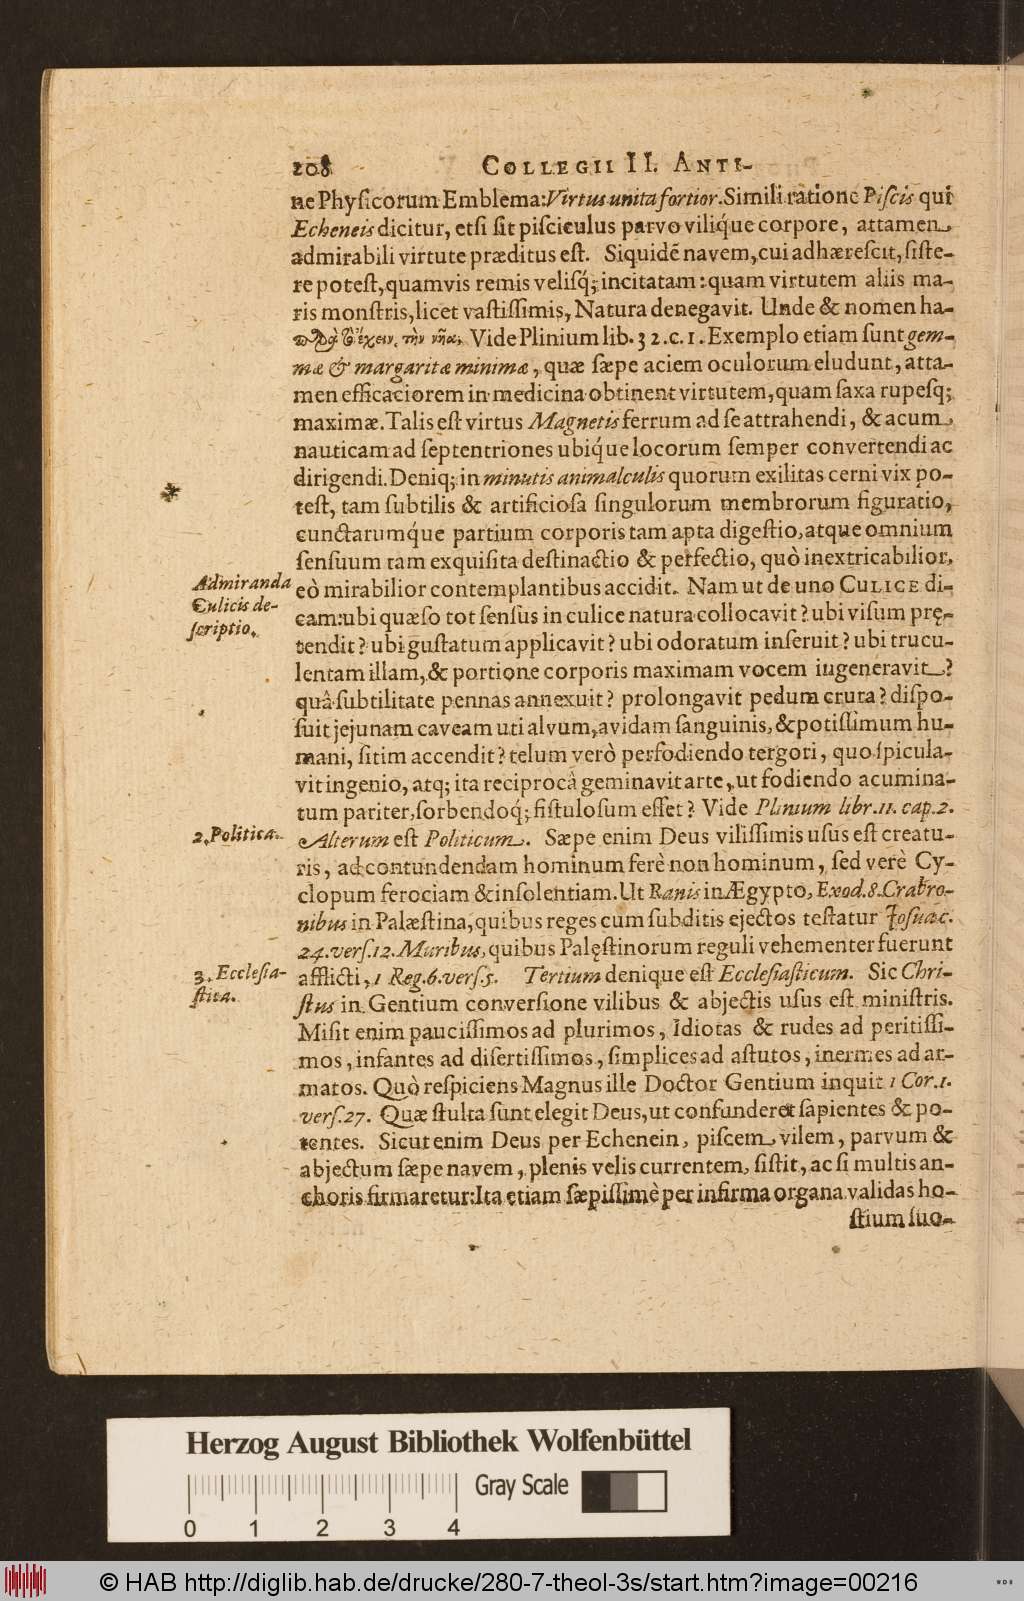 208 COLLEGII II. ANTI-
ne Physicorum Emblema: Virtus unita fortior. Simili ratione Piscis qui
Echeneis dicitur, etsi sit pisciculus parvo viliq́ue corpore, attamen
admirabili virtute præditus est. Siquidē navem, cui adhærescit, siste-
re potest, quamvis remis velisq́; incitatam: quam virtutem aliis ma-
ris monstris, licet vastissimis, Natura denegavit. Unde & nomen ha-
ἔχειν τὴν νῆα, Vide Plinium lib. 32. c. 1. Exemplo etiam sunt gem-
mæ & margaritæ minimæ, quæ sæpe aciem oculorum eludunt, atta-
men efficaciorem in medicina obtinent virtutem, quam saxa rupesq;
maximæ. Talis est virtus Magnetis ferrum ad se attrahendi, & acum
nauticam ad septentriones ubiq́ue locorum semper convertendi ac
dirigendi. Deniq; in minutis animalculis quorum exilitas cerni vix po-
test, tam subtilis & artificiosa singulorum membrorum figuratio,
cunctarumq́ue partium corporis tam apta digestio, atque omnium
sensuum tam exquisita destinactio & perfectio, quò inextricabilior,
eò mirabilior contemplantibus accidit. Nam ut de uno CULICE di-
Admiranda
Culicis de-
scriptio.
cam: ubi quæso tot sensus in culice natura collocavit? ubi visum prę-
tendit? ubi gustatum applicavit? ubi odoratum inseruit? ubi trucu-
lentam illam, & portione corporis maximam vocem iugeneravit?
quâ subtilitate pennas annexuit? prolongavit pedum crura? dispo-
suit jejunam caveam uti alvum, avidam sanguinis, & potissimum hu-
mani, sitim accendit? telum verò perfodiendo tergori, quo spicula-
vit ingenio, atq; ita reciprocâ geminavit arte, ut fodiendo acumina-
tum pariter, sorbendoq; fistulosum esset? Vide Plinium libr. 11. cap. 2.
2. Politica.
Alterum est Politicum. Sæpe enim Deus vilissimis usus est creatu-
ris, ad contundendam hominum ferè non hominum, sed verè Cy-
clopum ferociam & insolentiam. Ut Ranis in Ægypto, Exod. 8. Crabro-
nibus in Palæstina, quibus reges cum subditis ejectos testatur Josua c.
24. vers. 12. Muribus, quibus Palęstinorum reguli vehementer fuerunt
afflicti, 1 Reg. 6. vers. 5. Tertium denique est Ecclesiasticum. Sic Chri-
3. Ecclesia-
stica.
stus in Gentium conversione vilibus & abjectis usus est ministris.
Misit enim paucissimos ad plurimos, Idiotas & rudes ad peritissi-
mos, infantes ad disertissimos, simplices ad astutos, inermes ad ar-
matos. Quò respiciens Magnus ille Doctor Gentium inquit 1 Cor. 1.
vers. 27. Quæ stulta sunt elegit Deus, ut confunderet sapientes & po-
tentes. Sicut enim Deus per Echenein, piscem vilem, parvum &
abjectum sæpe navem, plenis velis currentem, sistit, ac si multis an-
choris firmaretur: Ita etiam sæpissimè per infirma organa validas ho-
stium suo-
Herzog August Bibliothek Wolfenbüttel
Gray Scale
0 1 2 3 4
© HAB http://diglib.hab.de/drucke/280-7-theol-3s/start.htm?image=00216